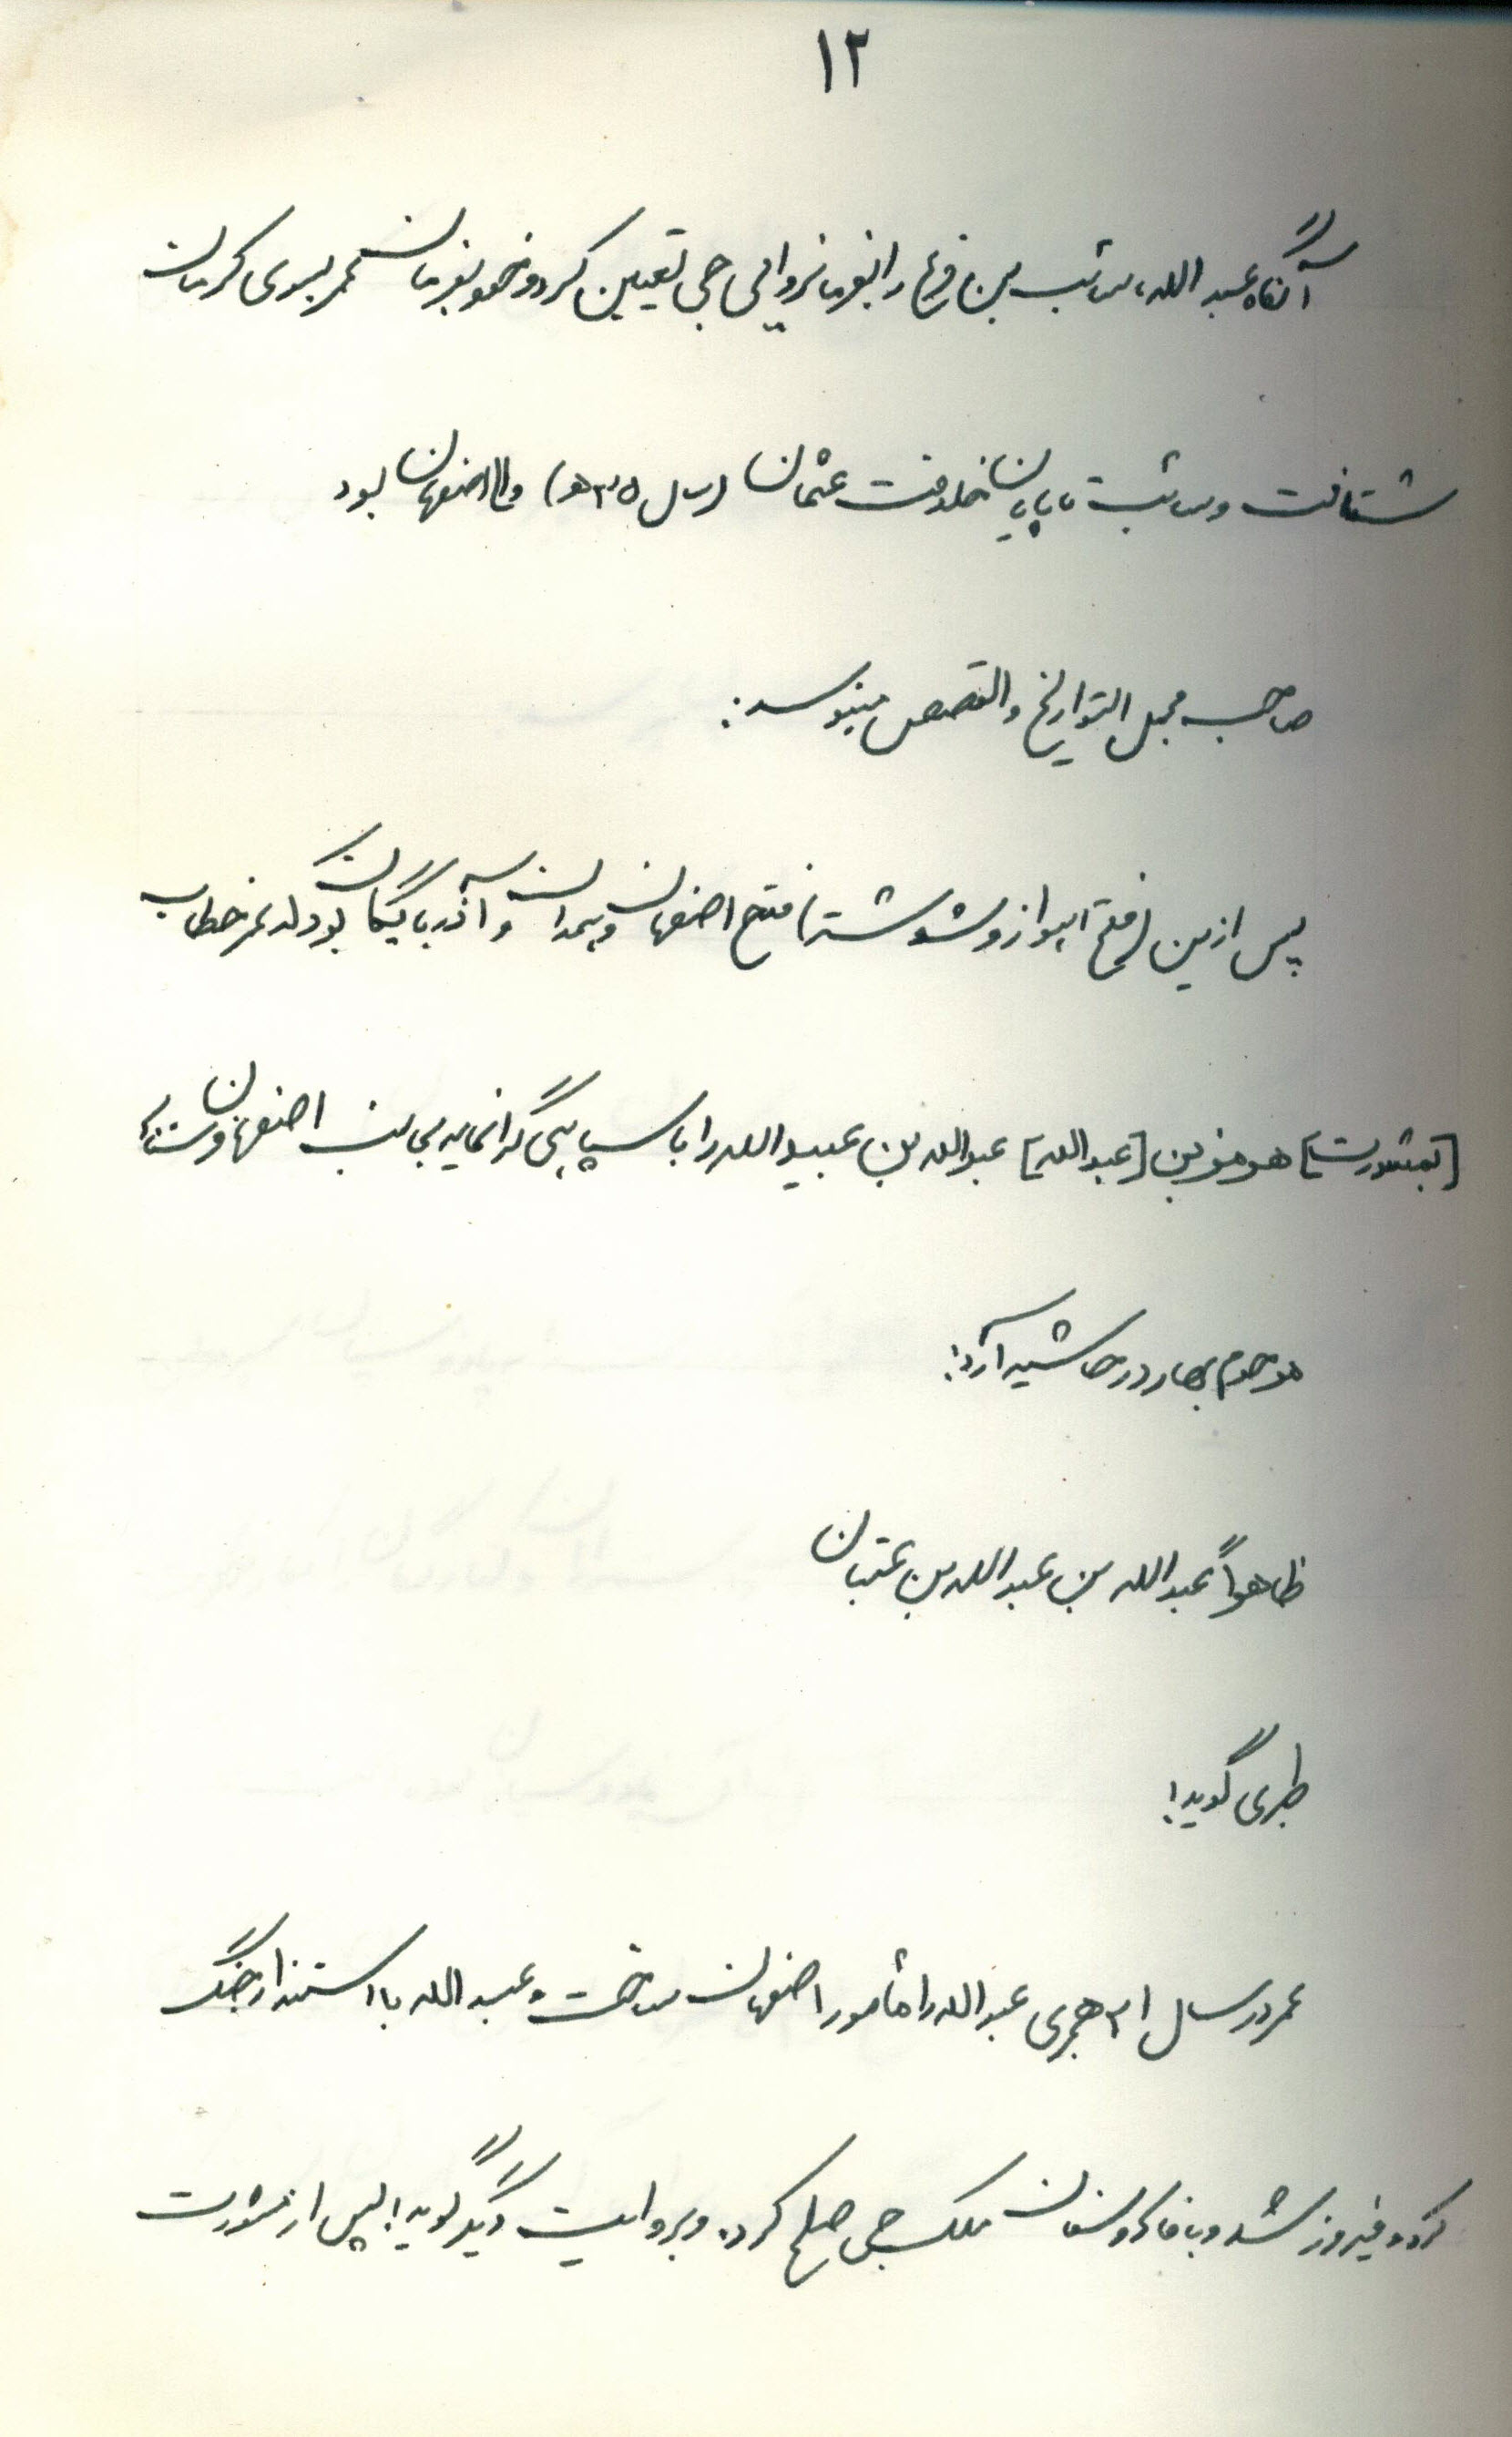 ۱۲
آنگاه عبد الله، سائب بن اقرع را بفرمانروایی جی تعیین کرد و خود بفرمان عمر بسوی کرمان
شتافت و سائب تا پایان خلافت عثمان (سال ۳۵ هـ) والی اصفهان بود
صاحب مجمل التواریخ و القصص مینویسد:
پس ازین (فتح اهواز و شوشتر) فتح اصفهان و همدان و آذربایگان بود که عمر خطاب
[بمشورت] هرمزبن [عبدالله] عبدالله بن عبیدالله را با سپاهی گرانمایه بجانب اصفهان فرستاد
مرحوم بهار در حاشیه آرد:
ظاهراً عبدالله بن عبدالله بن عتبان
طبری گوید:
عمر در سال ۲۱ هجری عبدالله را مأمور اصفهان ساخت و عبد الله با استندار جنگ
کرده فیروز شد و با فادوسفان ملک جی صلح کرد. و بروایت دیگر گوید: پس از مشورت